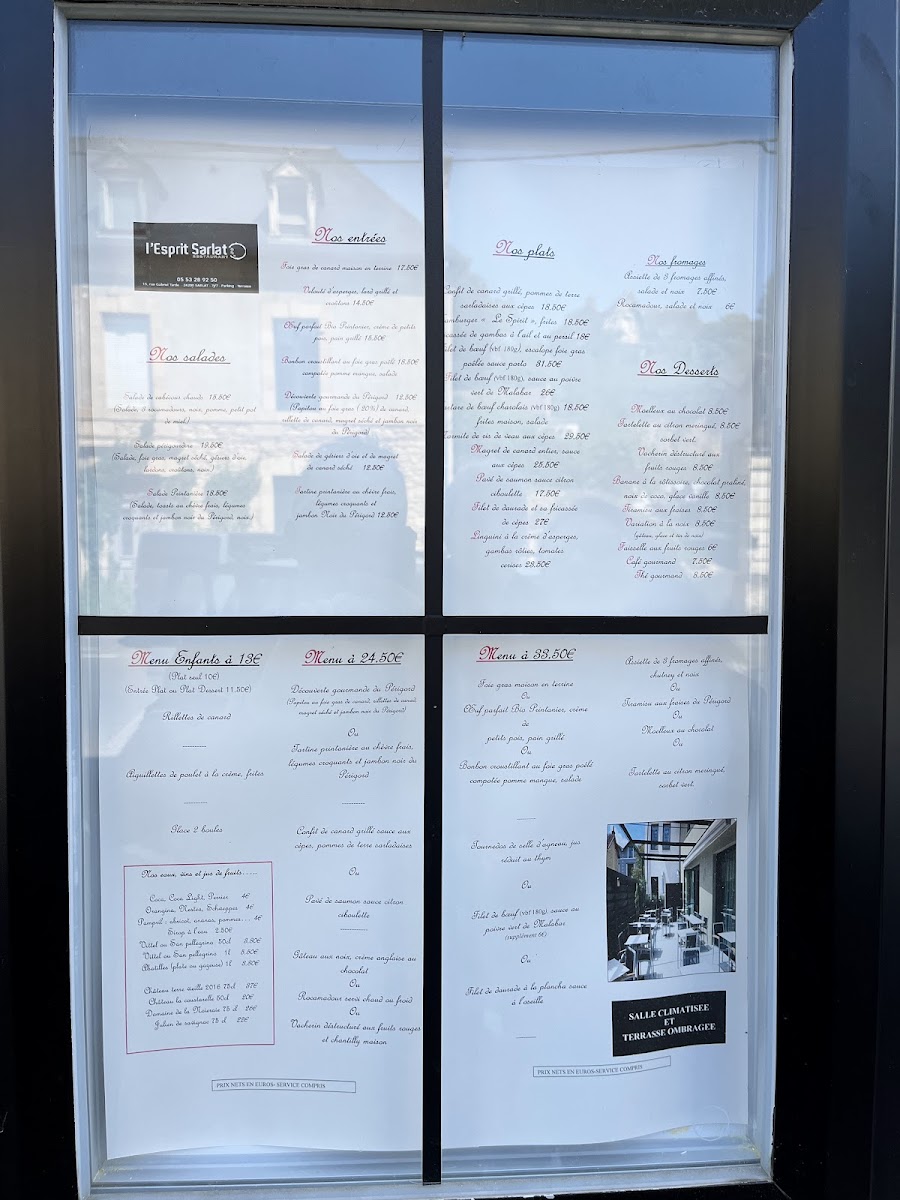 l'Esprit Sarlat
RESTAURANT
05 53 28 92 50
24200 SARLAT
Nos salades
Salade de cabécou chauds 18.50€
(Salade, 3 rocamadours, noix, pomme, petit pot
de miel)
Salade périgourdine 19.50€
(Salade, foie gras, magret séché, gésiers d'oie,
lardons, croûtons, noix)
Salade Printanière 18.50€
(Salade, toasts au chèvre frais, légumes
croquants et jambon noir du Périgord, noix)
Nos entrées
Foie gras de canard maison en terrine 17.50€
Velouté d'asperges, lard grillé et
croûtons 14.50€
Œuf parfait Bio Printanier, crème de petits
pois, pain grillé 15.50€
Bonbon croustillant au foie gras poêlé 18.50€
compotée pomme mangue, salade
Découverte gourmande du Périgord 12.50€
(Papiton au foie gras ( 20%) de canard,
rillette de canard, magret séché et jambon noir
du Périgord)
Salade de gésiers d'oie et de magret
de canard séché 12.50€
Tartine printanière au chèvre frais,
légumes croquants et
jambon Noir du Périgord 12.50€
Nos plats
Confit de canard grillé, pommes de terre
sarladaises aux cèpes 18.50€
hamburger « Le Spirit », frites 18.50€
gambas à l'ail et au persil 18€
filet de bœuf (vbf 180g), escalope foie gras
poêlée sauce porto 31.50€
Filet de bœuf (vbf 180g), sauce au poivre
vert de Malabar 26€
tartare de bœuf charolais (vbf 180g) 18.50€
frites maison, salade
de ris de veau aux cèpes 29.50€
Magret de canard entier, sauce
aux cèpes 25,50€
Pavé de saumon sauce citron
ciboulette 17.50€
Filet de daurade et sa fricassée
de cèpes 27€
Linguini à la crème d'asperges,
gambas rôties, tomates
cerises 23.50€
Nos fromages
Assiette de 3 fromages affinés,
salade et noix 7.50€
Rocamadour, salade et noix 6€
Nos Desserts
Moelleux au chocolat 8.50€
Tartelette au citron meringué, 8.50€
sorbet vert.
Vacherin déstructuré aux
fruits rouges 8.50€
Banane à la rôtissoire, chocolat praliné,
noix de coco, glace vanille 8.50€
Tiramisu aux fraises 8.50€
Variation à la noix 8.50€
(gâteau, glace et vin de noix)
Faisselle aux fruits rouges 6€
Café gourmand 7.50€
Thé gourmand 8.50€
Menu Enfants à 13€
(Plat seul 10€)
(Entrée Plat ou Plat Dessert 11.50€)
Rillettes de canard
----------
Aiguillettes de poulet à la crème, frites
----------
Glace 2 boules
Nos eaux, vins et jus de fruits.....
Coca, Coca Light, Perrier 4€
Orangina, Nestea, Schweppes 4€
Pampril : abricot, ananas, pomme... 4€
Sirop à l'eau 2.50€
Vittel ou San pellegrino 50cl 3.50€
Vittel ou San pellegrino 1l 5.50€
Abatilles (plate ou gazeuse) 1l 5.50€
Château terre vieille 2016 75cl 37€
Château la 50cl 20€
Domaine de la 75 cl 26€
Julien de savignac 75 cl 22€
PRIX NETS EN EUROS- SERVICE COMPRIS
Menu à 24.50€
Découverte gourmande du Périgord
(Papiton au foie gras de canard, rillettes de canard,
magret séché et jambon noir du Périgord)
Ou
Tartine printanière au chèvre frais,
légumes croquants et jambon noir du
Périgord
----------
Confit de canard grillé sauce aux
cèpes, pommes de terre sarladaises
Ou
Pavé de saumon sauce citron
ciboulette
----------
Gâteau aux noix, crème anglaise au
chocolat
Ou
Rocamadour servi chaud ou froid
Ou
Vacherin déstructuré aux fruits rouges
et chantilly maison
Menu à 33.50€
Foie gras maison en terrine
Ou
Œuf parfait Bio Printanier, crème
de
petits pois, pain grillé
Ou
Bonbon croustillant au foie gras poêlé
compotée pomme mangue, salade
-------
Tournedos de selle d'agneau, jus
réduit au thym
Ou
Filet de bœuf (vbf 180g), sauce au
poivre vert de Malabar
(supplément 6€)
Ou
Filet de daurade à la plancha sauce
à l'oseille
-------
Assiette de 3 fromages affinés,
chutney et noix
Ou
Tiramisu aux fraises de Périgord
Ou
Moelleux au chocolat
Ou
Tartelette au citron meringué,
sorbet vert.
SALLE CLIMATISEE
ET
TERRASSE OMBRAGEE
PRIX NETS EN EUROS-SERVICE COMPRIS